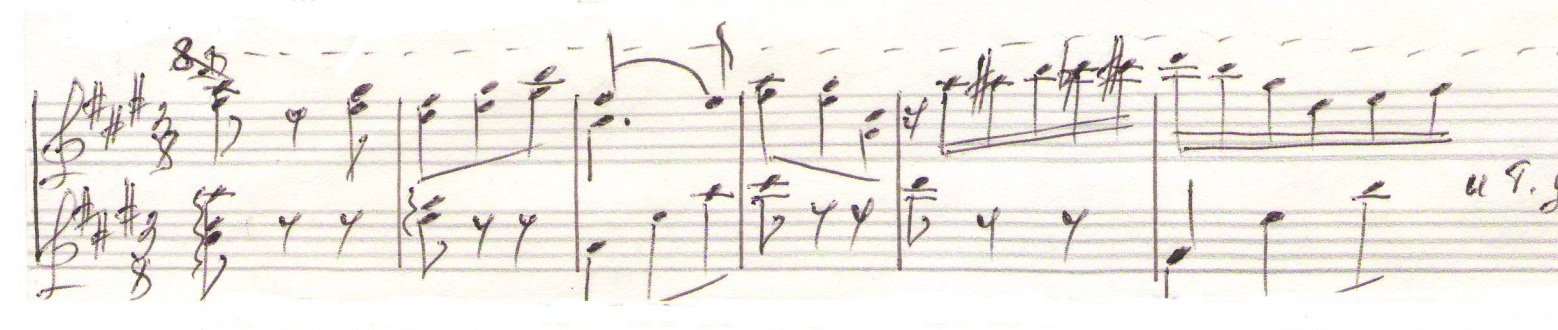 8
3
8
3
8
и т. д